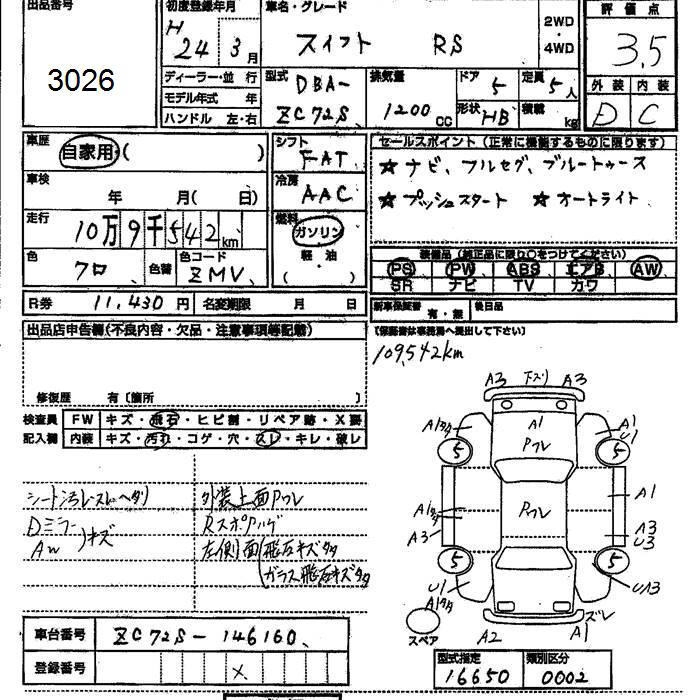 出品番号
3026
初度登録年月
H 24 3月
車名・グレード
スイフト RS
2WD
・
4WD
評価点
3.5
外装 内装
D C
ディーラー・並行
モデル年式 年
ハンドル 左・右
型式 DBA-
ZC72S
排気量
1200 cc
ドア 5
定員 5人
形状 HB
積載 kg
車歴
自家用・( )
車検
年 月( 日)
走行
10万9千542km
色
クロ
色替
色コード
ZMV
シフト
FAT
冷房
AAC
燃料
ガソリン
軽・油
( )
セールスポイント(正常に機能するものに限ります)
☆ナビ、フルセグ、ブルートゥース
☆プッシュスタート ☆オートライト
装備品(純正品に限り○をつけてください)
PS PW ABS エアB AW
SR ナビ TV カワ
R券 11,430円 名変期限 月 日
新車保証書 有・無 後日品
(保証書は事務局へ提出して下さい)
出品店申告欄(不良内容・欠品・注意事項等記載)
修復歴 有〔箇所 〕
109,542km
検査員 FW キズ・飛石・ヒビ割・リペア跡・X要
記入欄 内装 キズ・汚れ・コゲ・穴・スレ・キレ・破レ
外装上面Pクレ
Dミラー
AW
キズ
左側面
飛石キズタタ
ガラス飛石キズタタ
A3 下ズリ A3
A1タタ A1 A1
U1
Pクレ
5 5
A1タタ Pクレ A1
A3 A3
U3
5 5
U1 UA3
A1タタ
スペア
A2 A1 ズレ
車台番号 ZC72S-146160
登録番号 X
型式指定 類別区分
16650 0002